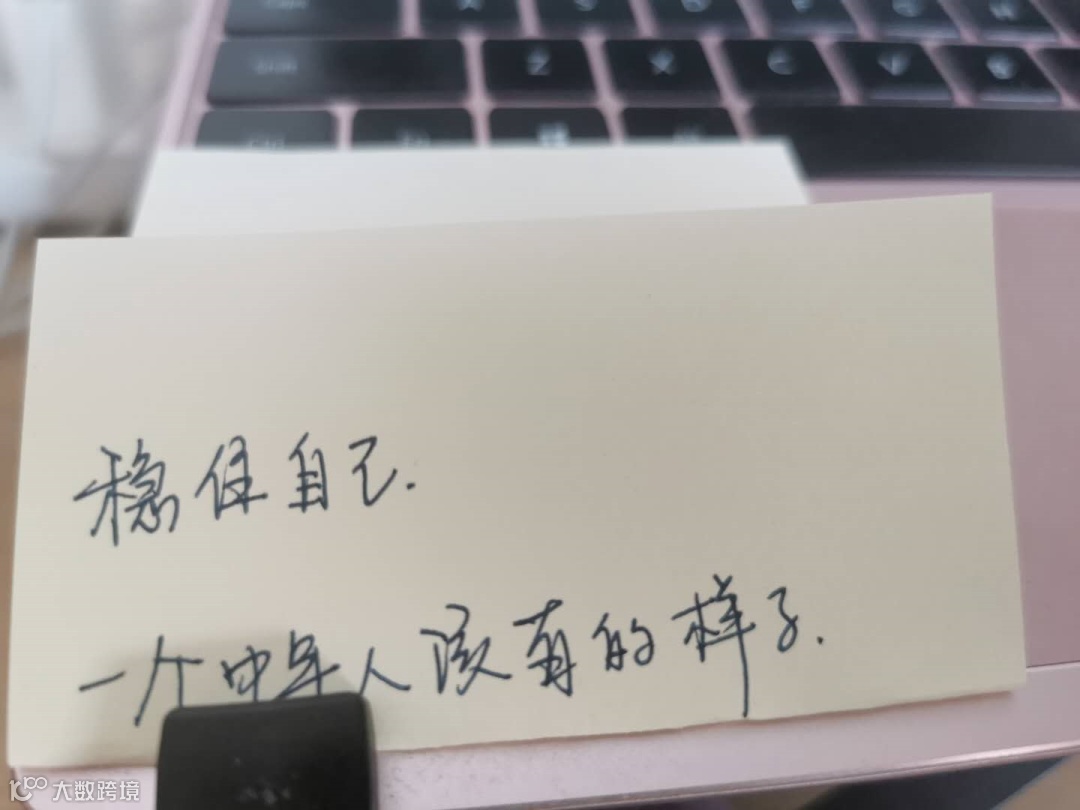 Z X C V B
稳住自己.
一个中年人该有的样子.
大数跨境